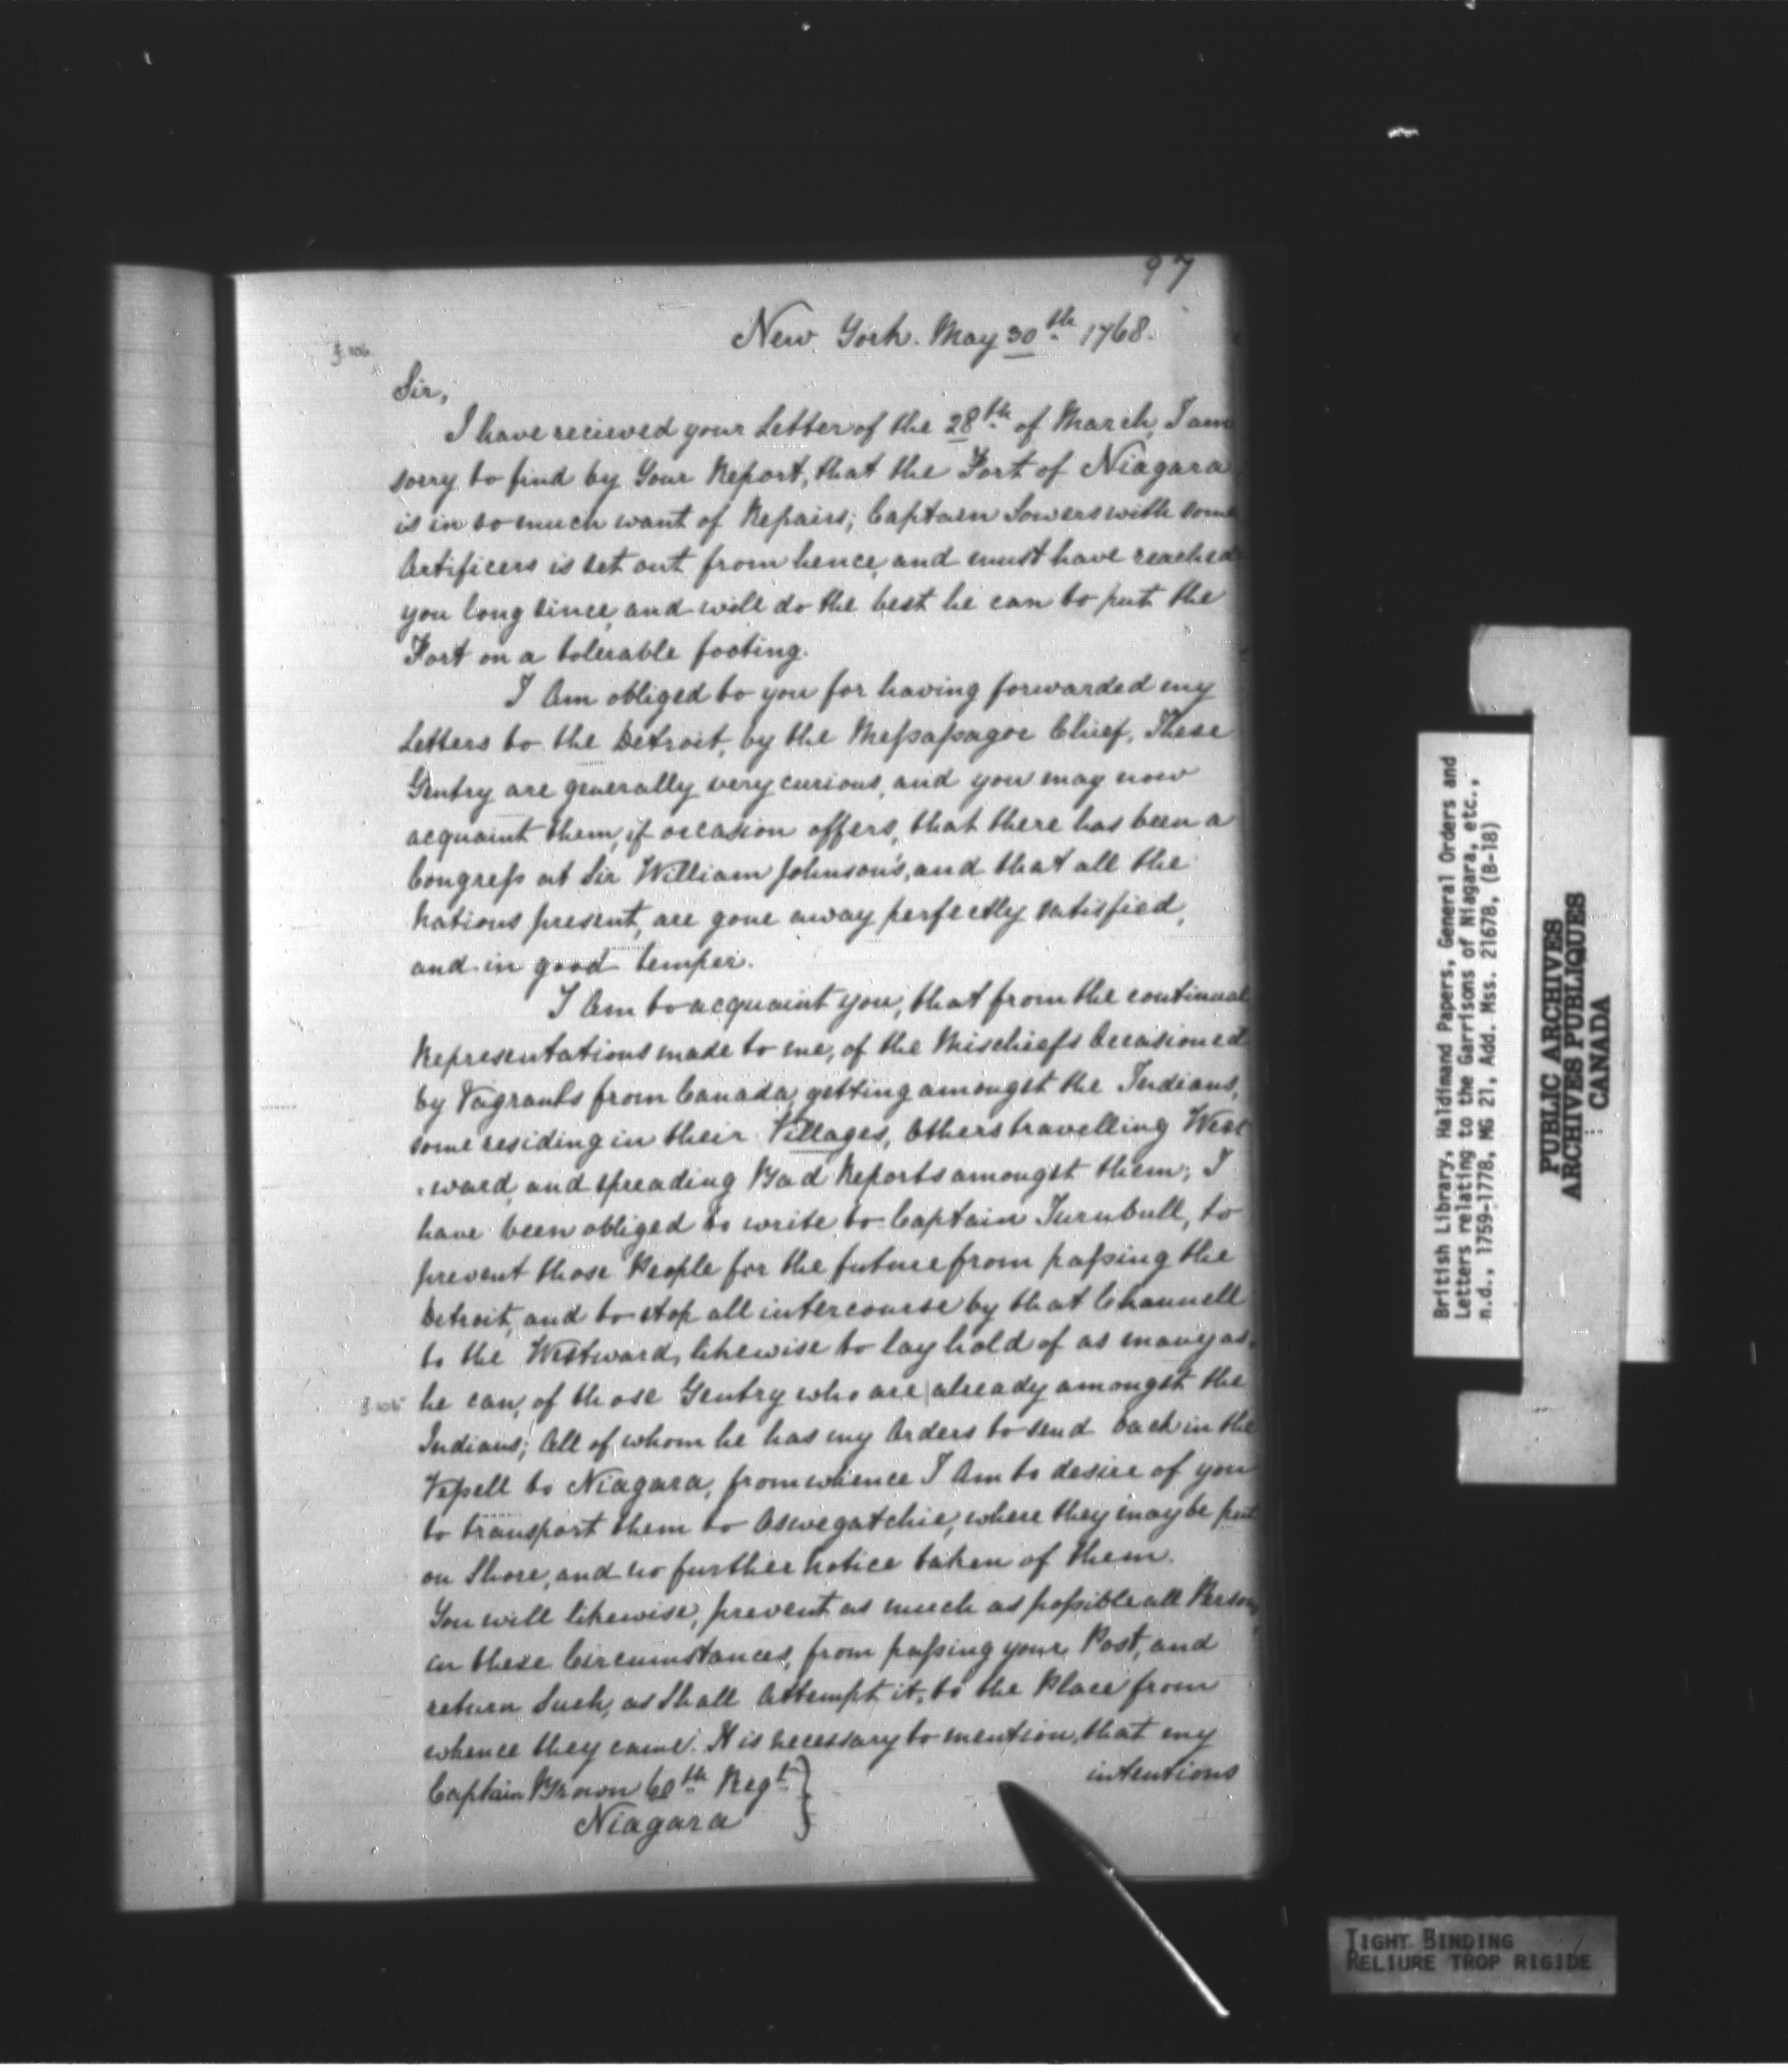 97
New York. May 30th 1768.
Sir,
I have recieved your Letter of the 28th of March, I am
sorry to find by Your Report, that the Fort of Niagara
is in so much want of Repairs; Captain Sowers with some
Artificers is set out from hence, and must have reached
you long since, and will do the best he can to put the
Fort on a tolerable footing.
I Am obliged to you for having forwarded my
Letters to the Detroit, by the Messassagoe Chief, These
Gentry are generally very curious, and you may now
acquaint them, if occasion offers, that there has been a
Congress at Sir William Johnson's, and that all the
Nations present, are gone away perfectly satisfied,
and in good temper.
I Am to acquaint you, that from the continual
Representations made to me, of the Mischiefs Occasioned
by Vagrants from Canada, getting amongst the Indians,
some residing in their Villages, Others travelling West
ward, and spreading Bad Reports amongst them; I
have been obliged to write to Captain Turnbull, to
prevent those People for the future from passing the
Detroit, and to stop all intercourse by that Channell
to the Westward, likewise to lay hold of as many as
he can, of those Gentry who are | already amongst the
Indians; All of whom he has my Orders to send back in the
Vessell to Niagara, from whence I Am to desire of you
to transport them to Oswegatchie, where they may be put
on Shore, and no further notice taken of them.
You will likewise, prevent as much as possible all Persons
in these Circumstances, from passing your Post, and
return Such, as Shall Attempt it, to the Place from
whence they came. It is necessary to mention, that my
intentions
Captain Brown 60th Regt }
Niagara
British Library, Haldimand Papers, General Orders and
Letters relating to the Garrisons of Niagara, etc.,
n.d., 1759-1778, MG 21, Add. Mss. 21678, (B-18)
PUBLIC ARCHIVES
ARCHIVES PUBLIQUES
CANADA
TIGHT BINDING
RELIURE TROP RIGIDE